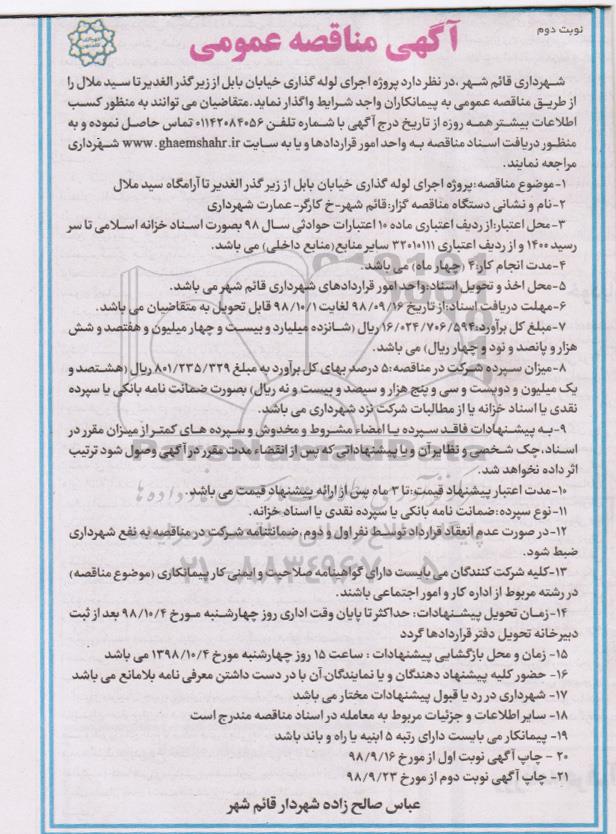 نوبت دوم
آگهی مناقصه عمومی
شهرداری قائم شهر ،در نظر دارد پروژه اجرای لوله گذاری خیابان بابل از زیر گذر الغدیر تا سید ملال را
از طریق مناقصه عمومی به پیمانکاران واجد شرایط واگذار نماید.متقاضیان می توانند به منظور کسب
اطلاعات بیشتر همه روزه از تاریخ درج آگهی با شماره تلفن ۰۱۱۴۲۰۸۴۰۵۶ تماس حاصل نموده و به
منظور دریافت اسناد مناقصه به واحد امور قراردادها و یا به سایت www.ghaemshahr.ir شهرداری
مراجعه نمایند.
۱-موضوع مناقصه:پروژه اجرای لوله گذاری خیابان بابل از زیر گذر الغدیر تا آرامگاه سید ملال
۲-نام و نشانی دستگاه مناقصه گزار:قائم شهر-خ کارگر- عمارت شهرداری
۳-محل اعتبار:از ردیف اعتباری ماده ۱۰ اعتبارات حوادثی سال ۹۸ بصورت اسناد خزانه اسلامی تا سر
رسید ۱۴۰۰ و از ردیف اعتباری ۳۲۰۱۰۱۱۱ سایر منابع(منابع داخلی) می باشد.
۴-مدت انجام کار:۴ (چهار ماه) می باشد.
۵-محل اخذ و تحویل اسناد:واحد امور قراردادهای شهرداری قائم شهر می باشد.
۶-مهلت دریافت اسناد:از تاریخ ۹۸/۰۹/۱۶ لغایت ۹۸/۱۰/۱ قابل تحویل به متقاضیان می باشد.
۷-مبلغ کل برآورد:۱۶/۰۲۴/۷۰۶/۵۹۴ ریال (شانزده میلیارد و بیست و چهار میلیون و هفتصد و شش
هزار و پانصد و نود و چهار ریال) می باشد.
۸-میزان سپرده شرکت در مناقصه:۵ درصد بهای کل برآورد به مبلغ ۸۰۱/۲۳۵/۳۲۹ ریال (هشتصد و
یک میلیون و دویست و سی و پنج هزار و سیصد و بیست و نه ریال) بصورت ضمانت نامه بانکی یا سپرده
نقدی یا اسناد خزانه یا از مطالبات شرکت نزد شهرداری می باشد.
۹-به پیشنهادات فاقد سپرده یا امضاء مشروط و مخدوش و سپرده های کمتر از میزان مقرر در
اسناد،چک شخصی و نظایر آن و یا پیشنهاداتی که پس از انقضاء مدت مقرر در آگهی وصول شود ترتیب
اثر داده نخواهد شد.
۱۰-مدت اعتبار پیشنهاد قیمت:تا ۳ ماه پس از ارائه پیشنهاد قیمت می باشد.
۱۱-نوع سپرده:ضمانت نامه بانکی یا سپرده نقدی یا اسناد خزانه.
۱۲-در صورت عدم انعقاد قرارداد توسط نفر اول و دوم، ضمانتنامه شرکت در مناقصه به نفع شهرداری
ضبط شود.
۱۳-کلیه شرکت کنندگان می بایست دارای گواهینامه صلاحیت و ایمنی کار پیمانکاری (موضوع مناقصه)
در رشته مربوط از اداره کار و امور اجتماعی باشند.
۱۴-زمان تحویل پیشنهادات: حداکثر تا پایان وقت اداری روز چهارشنبه مورخ ۹۸/۱۰/۴ بعد از ثبت
دبیرخانه تحویل دفتر قراردادها گردد
۱۵- زمان و محل بازگشایی پیشنهادات : ساعت ۱۵ روز چهارشنبه مورخ ۱۳۹۸/۱۰/۴ می باشد
۱۶- حضور کلیه پیشنهاد دهندگان و یا نمایندگان آن با در دست داشتن معرفی نامه بلامانع می باشد
۱۷- شهرداری در رد یا قبول پیشنهادات مختار می باشد
۱۸- سایر اطلاعات و جزئیات مربوط به معامله در اسناد مناقصه مندرج است
۱۹- پیمانکار می بایست دارای رتبه ۵ ابنیه یا راه و باند باشد
۲۰ - چاپ آگهی نوبت اول از مورخ ۹۸/۹/۱۶
۲۱- چاپ آگهی نوبت دوم از مورخ ۹۸/۹/۲۳
عباس صالح زاده شهردار قائم شهر
ParsNamadData
۰۲۱-۸۸۳۴۹۶۷۰-۵